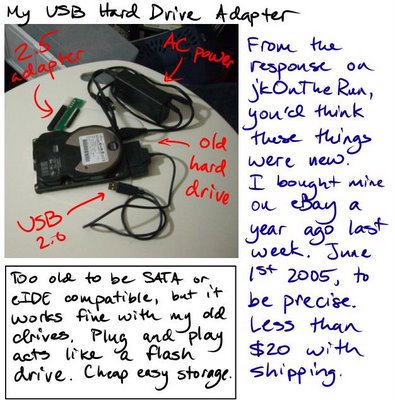 My USB Hard Drive Adapter
2.5
adapter
AC power
old
hard
drive
USB
2.0
From the
response on
jkOnTheRun,
you'd think
these things
were new.
I bought mine
on eBay a
year ago last
week. June
1st 2005, to
be precise.
Less than
$20 with
shipping.
Too old to be SATA or
eIDE compatible, but it
works fine with my old
drives. Plug and play
acts like a flash
drive. Cheap easy storage.